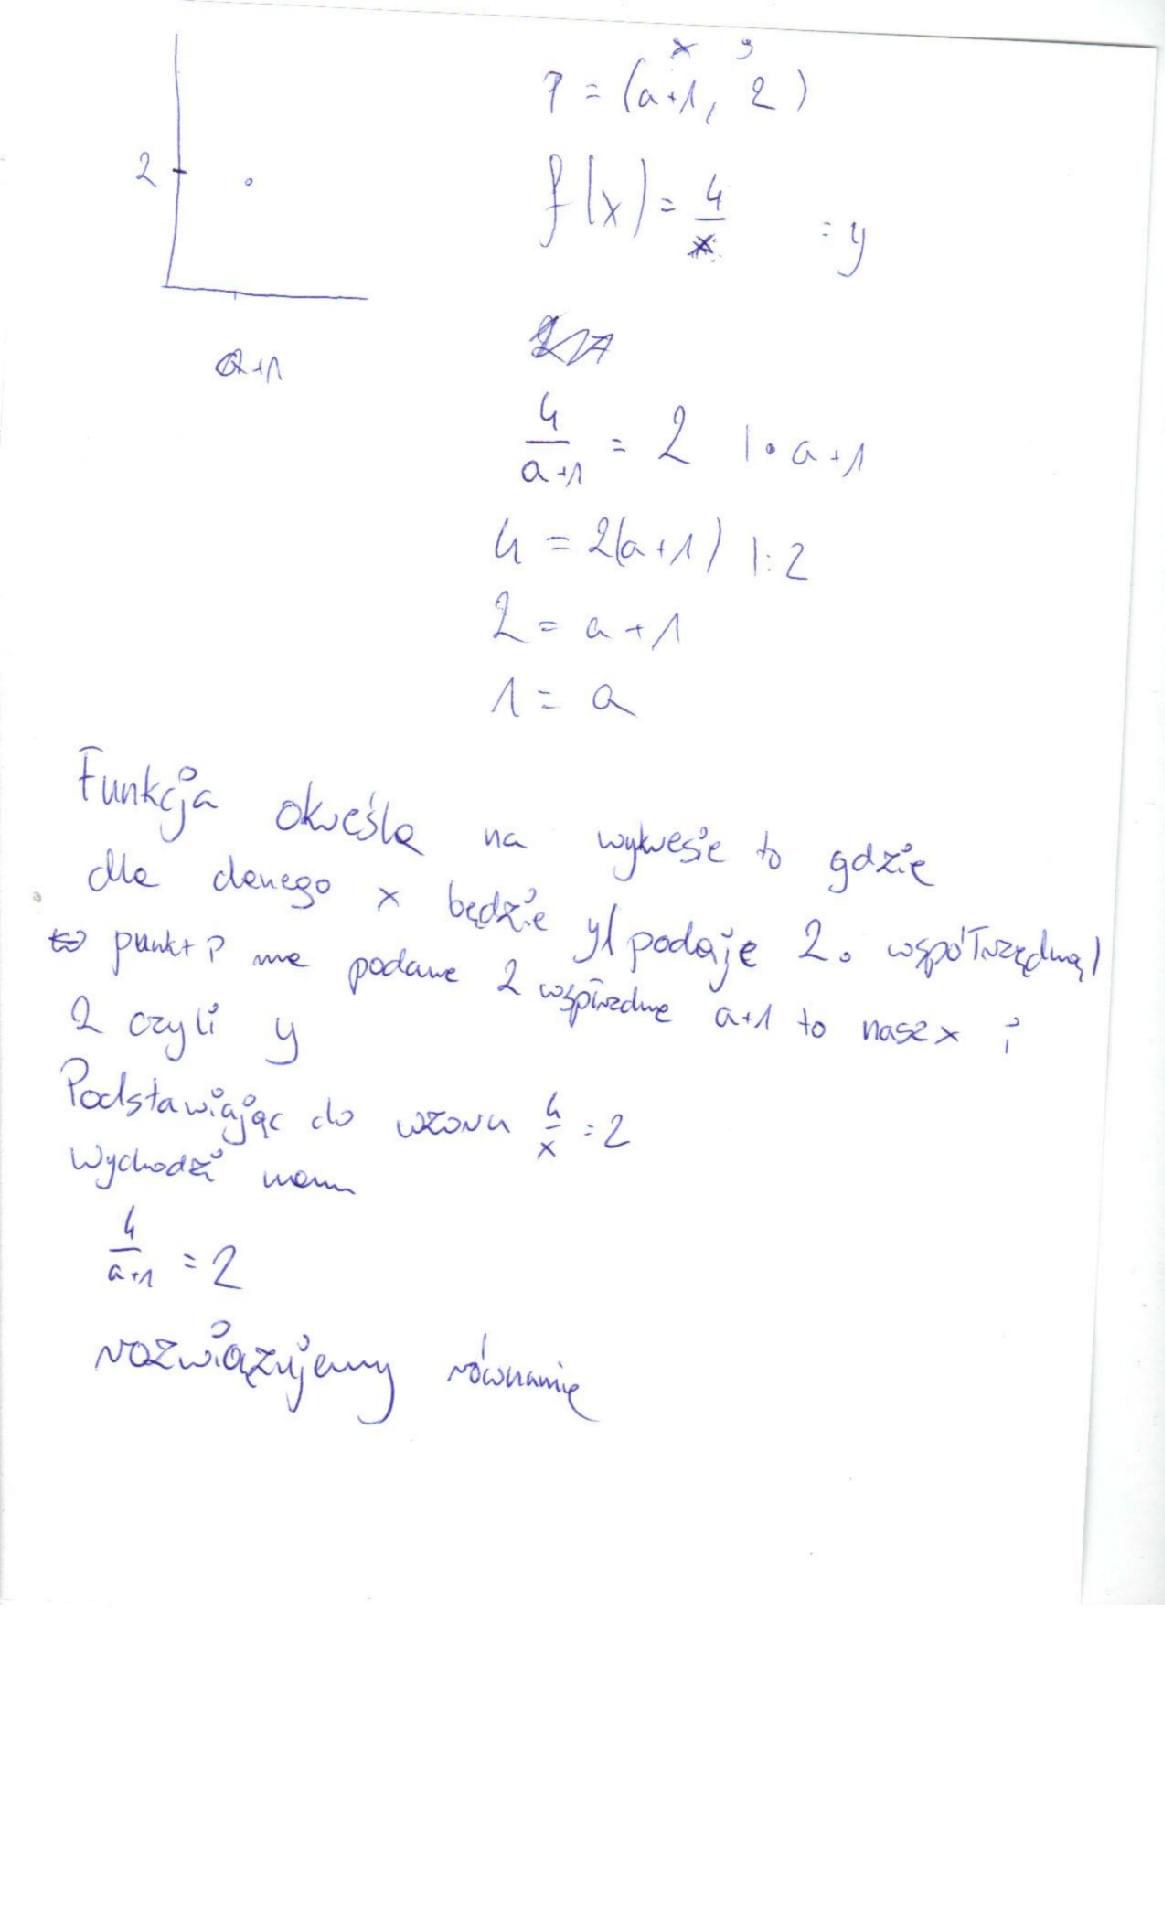 x y
P = (a+1, 2)
2
f(x) = 4/x = y
a+1
4/a+1 = 2 |• a+1
4 = 2(a+1) |:2
2 = a+1
1 = a
Funkcja określa na wykresie to gdzie
dla danego x będzie y (podaje 2. współrzędną)
punkt P ma podane 2 wspórzdne a+1 to nasz x i
2 czyli y
Podstawiając do wzoru 4/x = 2
Wychodzi nam
4/a+1 = 2
rozwiązujemy równanie